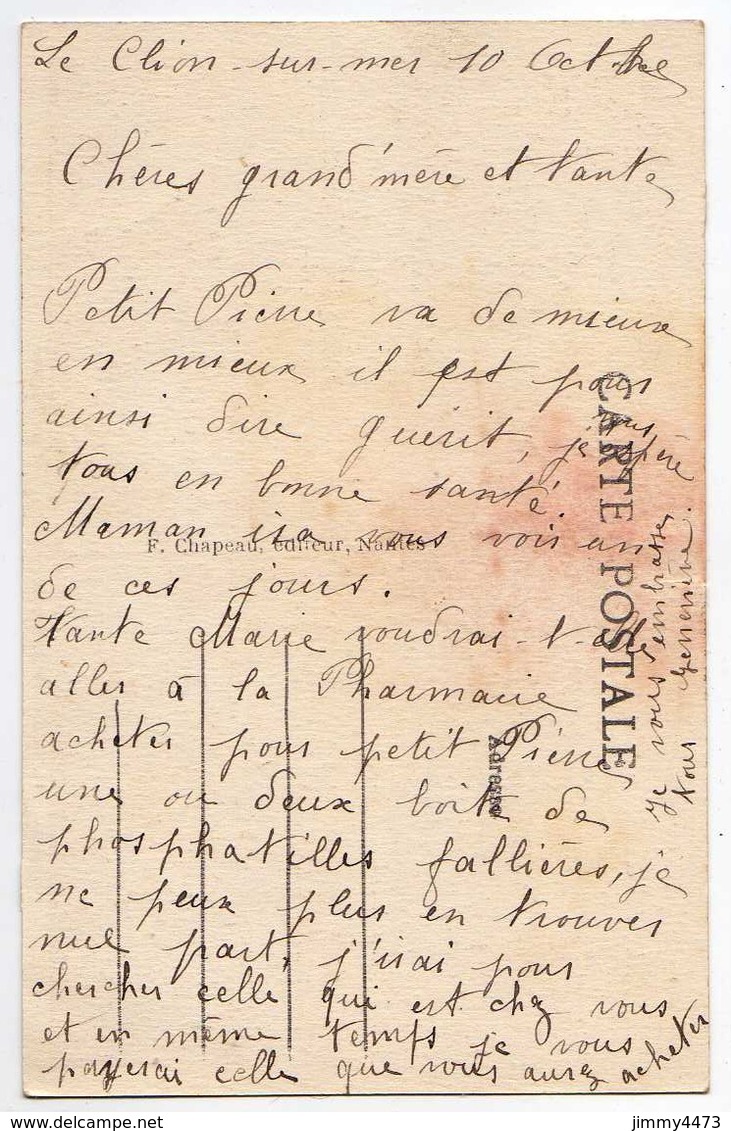 Le Clion-sur-mer 10 Octbre
Chères grand'mère et tante
Petit Pierre va de mieux
en mieux il est pour
ainsi dire guérit, j'espère
vous
tous en bonne santé.
Maman ira vous voir un
de ces jours.
Tante Marie voudrai-t-elle
aller à la Pharmacie
acheter pour petit Pierre
une ou deux boite de
phosphatilles fallières, je
ne peux plus en trouver
nul part, j'irai pour
chercher celle qui est chez vous
et en même temps je vous
payerai celle que vous aurez acheter
Je vous embrasse
tous Geneviève.
CARTE POSTALE
Adresse
F. Chapeau, éditeur, Nantes
delcampe.net
jimmy4473